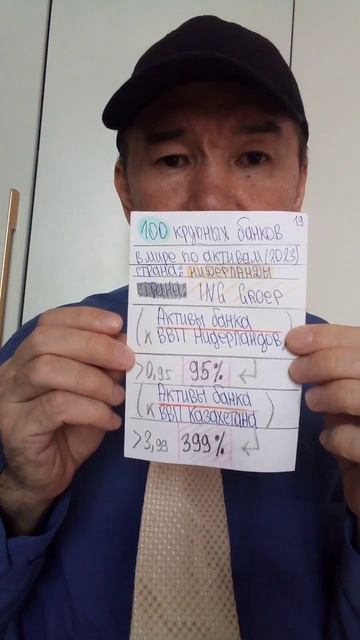 19
100 крупных банков
в мире по активам (2023)
страна: Нидерланды
ING Groep
(Активы банка
к ВВП Нидерландов)
>0,95 95%
(Активы банка
к ВВП Казахстана)
>3,99 399%